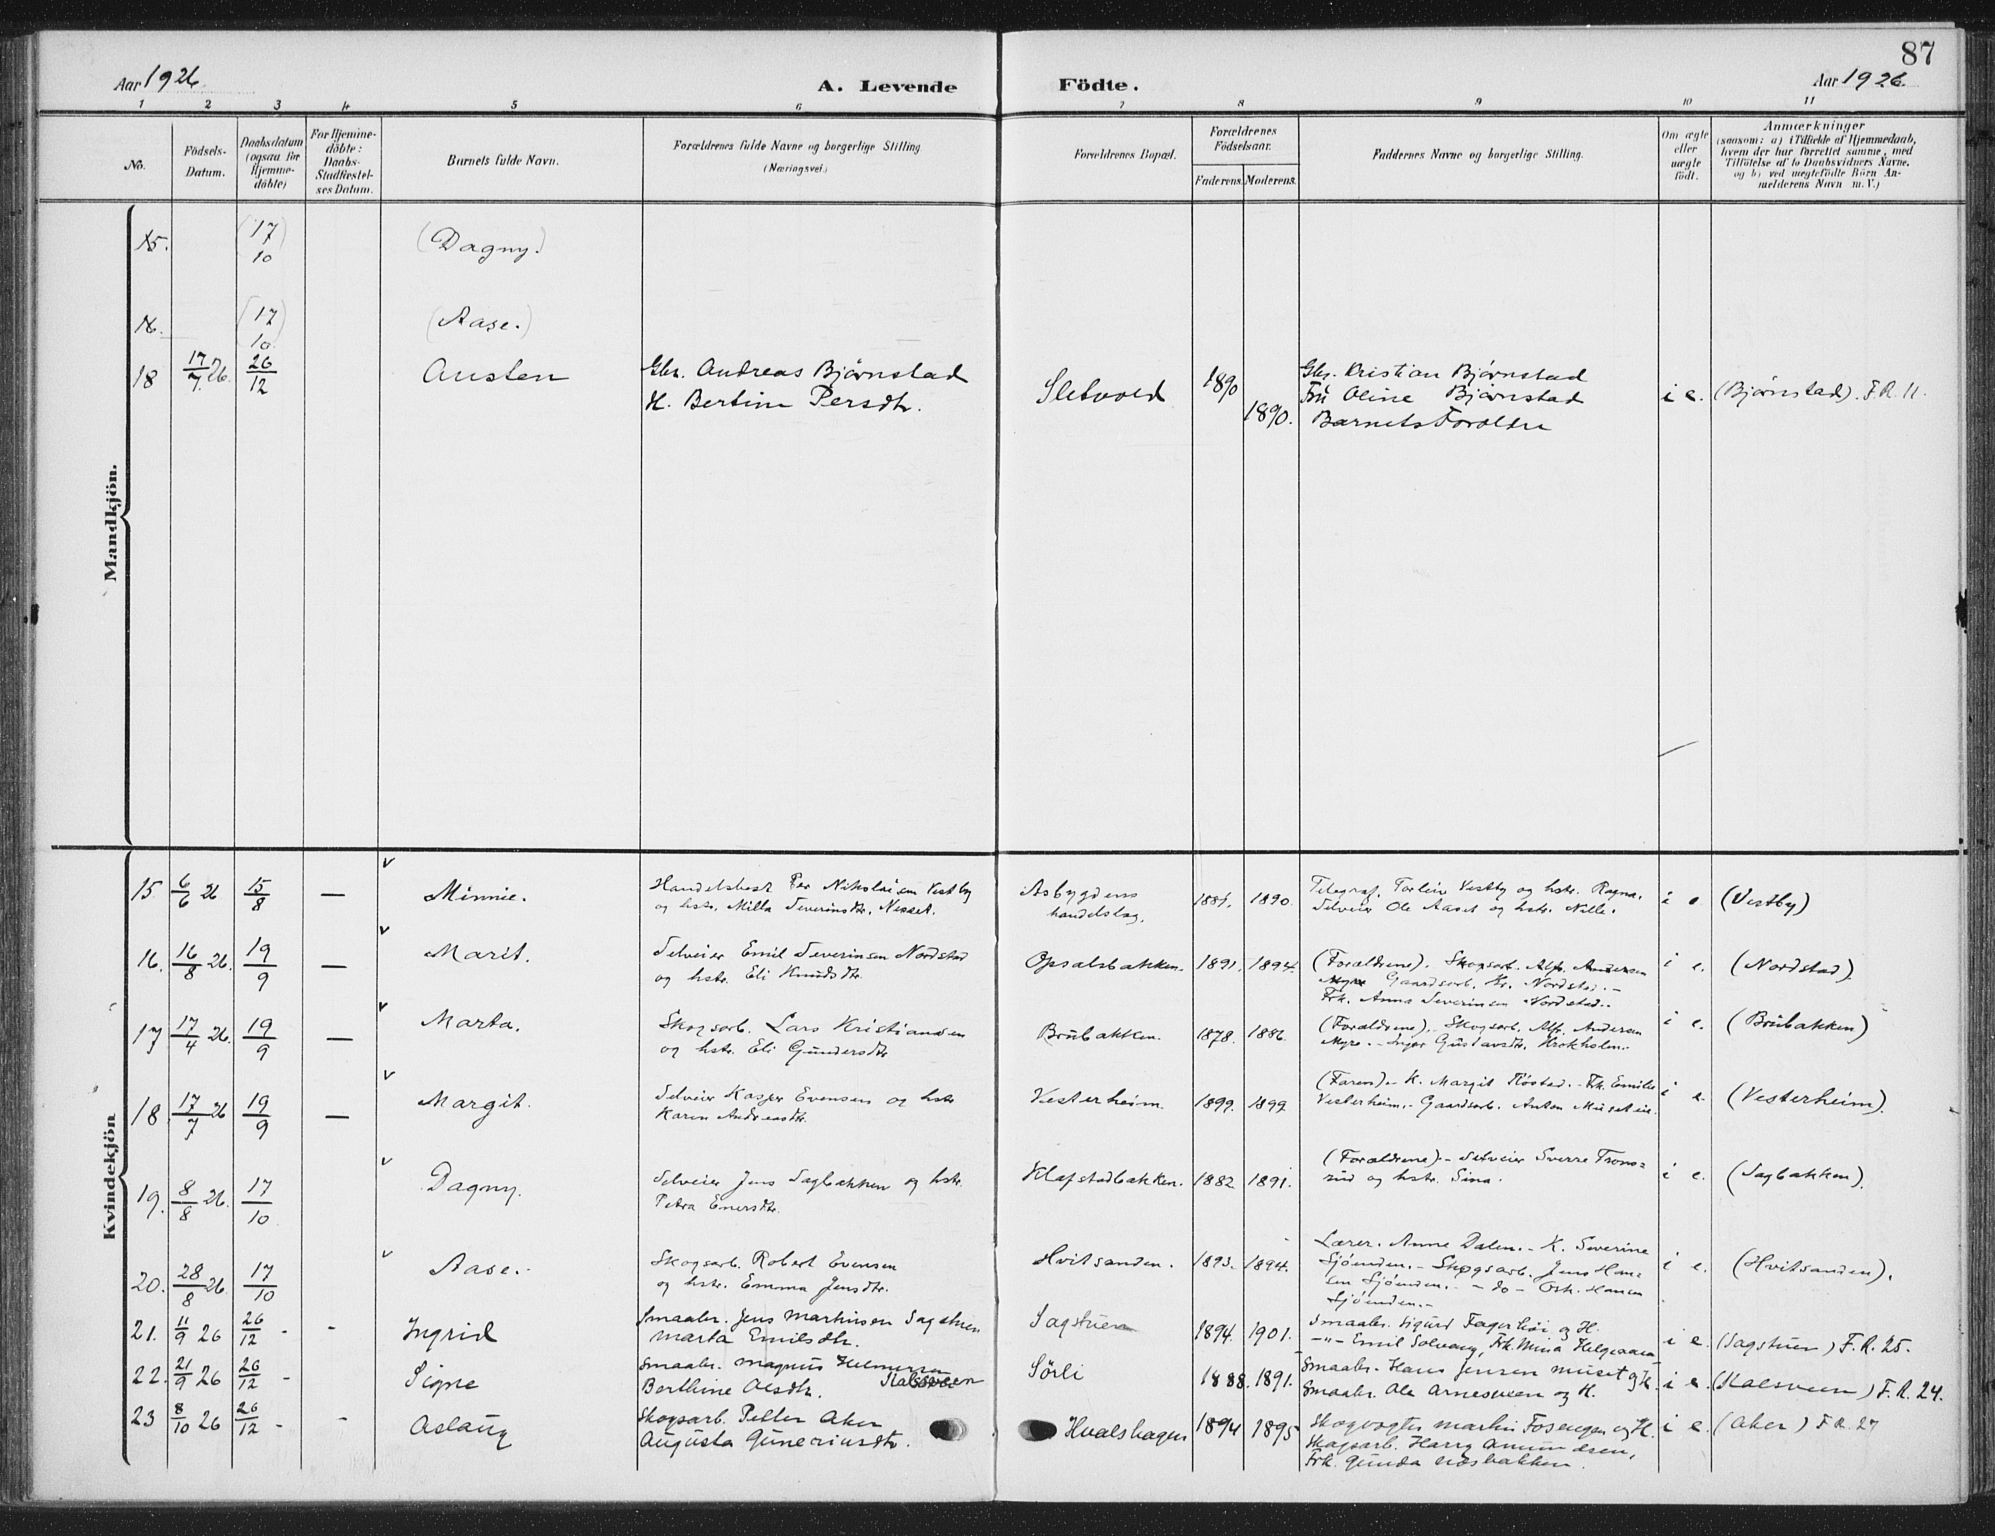 87
Aar 1926.
A. Levende Födte.
Aar 1926.
1 2 3 4 5 6 7 8 9 10 11
No.
Födsels-
Datum.
Daabsdatum
(ogsaa for
Hjemme-
döbte)
For Hjemme-
döbte:
Daabs-
Stadfæstel-
ses Datum.
Barnets fulde Navn.
Forældrenes fulde Navne og borgerlige Stilling
(Næringsvei.)
Forældrenes Bopæl.
Forældrenes
Födselsaar.
Faderens. Moderens.
Faddernes Navne og borgerlige Stilling.
Om ægte
eller
uægte
födt.
Anmærkninger
(saasom: a) i Tilfælde af Hjemmedaab,
hvem der har forrettet samme, med
Tilföielse af to Daabsvidners Navne,
og b) ved uægtefödte Börn An-
melderens Navn m. V.)
Mandkjön.
15. (17/10) (Dagny.)
16. (17/10) (Aase.)
18 17/7 26. 26/12 Austen
Gbr. Andreas Bjørnstad
H. Bertine Persdtr.
Sletvold 1890 1890.
Gbr. Kristian Bjørnstad
Frü Oline Bjørnstad
Barnets Foraldre
i e. (Bjørnstad). F.R. 11.
Kvindekjön
15. 6/6 26 15/8 — Minnie.
Handelsbest Per Nikolaisen Vestby
og hstr. Milla Severinsdtr. Nesset.
Asbygdens
handelslag. 1890.
Telegraf. Torleiv Vestby og hstr. Ragna.
Selveier Ole Aaset og hstr. Nille.
i e (Vestby)
16. 16/8 26. 19/9 — Marit.
Selveier Emil Severinsen Nordstad
og hstr. Eli Knudsdtr.
Opsalsbakken. 1891. 1894.
(Forældrene). Skogsarb. Alf. Andersen
Myre Gaardsarb. Kr. Nordstad. -
Frk. Anna Severinsen Nordstad..
i e. (Nordstad)
17. 17/4 26. 19/9 — Marta.
Skogsarb. Lars Kristiansen
og hstr. Eli Gundersdtr
Brübakken. 1878. 1886.
(Forældrene).- Skogsarb. Alf. Andersen
Myre. - Inger Gustavsdtr. Krokholen..
i e. (Brübakken)
18. 17/7 26 19/9 — Margit.
Selveier Kasper Evensen og hstr
Karen Andreasdtr.
Vesterheim. 1899. 1899
(Faren).- K. Margit Røstad. - Frk. Emilie
Vesterheim. - Gaardsarb. Anton
i e. (Vesterheim).
19. 8/8 26. 17/10 Dagny.
Selveier Jens Sagbakken og hstr.
Petra Enersdtr.
Klafstadbakken. 1882 1891.
(Forældrene).- Selveier Sverre Trons=
rüd og hstr. Sina.
i e. (Sagbakken).
20. 28/8 26. 17/10 Aase.
Skogsarb. Robert Evensen
og hstr. Emma Jensdtr.
Hvitsanden. 1893. 1894.
Lærer. Anne Dalen. - K. Severine
Sjöenden. - Skogsarb. Jens Han=
sen Sjöenden. - do - Osk. Hansen
Sjöenden.-
i e. (Hvitsanden).
21. 11/9 26 26/12 - - Ingrid
Smaabr. Jens Martinsen Sagstuen
Marta Emilsdtr.
Sagstuen 1894. 1901.
Smaabr. Sigurd Fagerhöi og H.
-"- Emil Solvang, Frk. Mina
i e. (Sagstuen) F.R. 25.
22. 21/9 26 26/12 - Signe
Smaabr. Magnus Helmersen
Berthine Olsdtr. Kalsveen
Sörli 1888. 1891.
Smaabr. Hans Jensen Muset og H.
Smaabr. Ole Arnesveen og H.
i e. (Kalsveen) F.R. 24.
23 8/10 26 26/12 - - Aslaug
Skogsarb. Petter Aker
Augusta Guneriusdtr.
Hvalshagen 1894 1895
Skogvogter Martin Fosengen og H.
Skogsarb. Harry Amundsen,
Frk. Gunda Næsbakken.
i e. (Aker) F R. 27